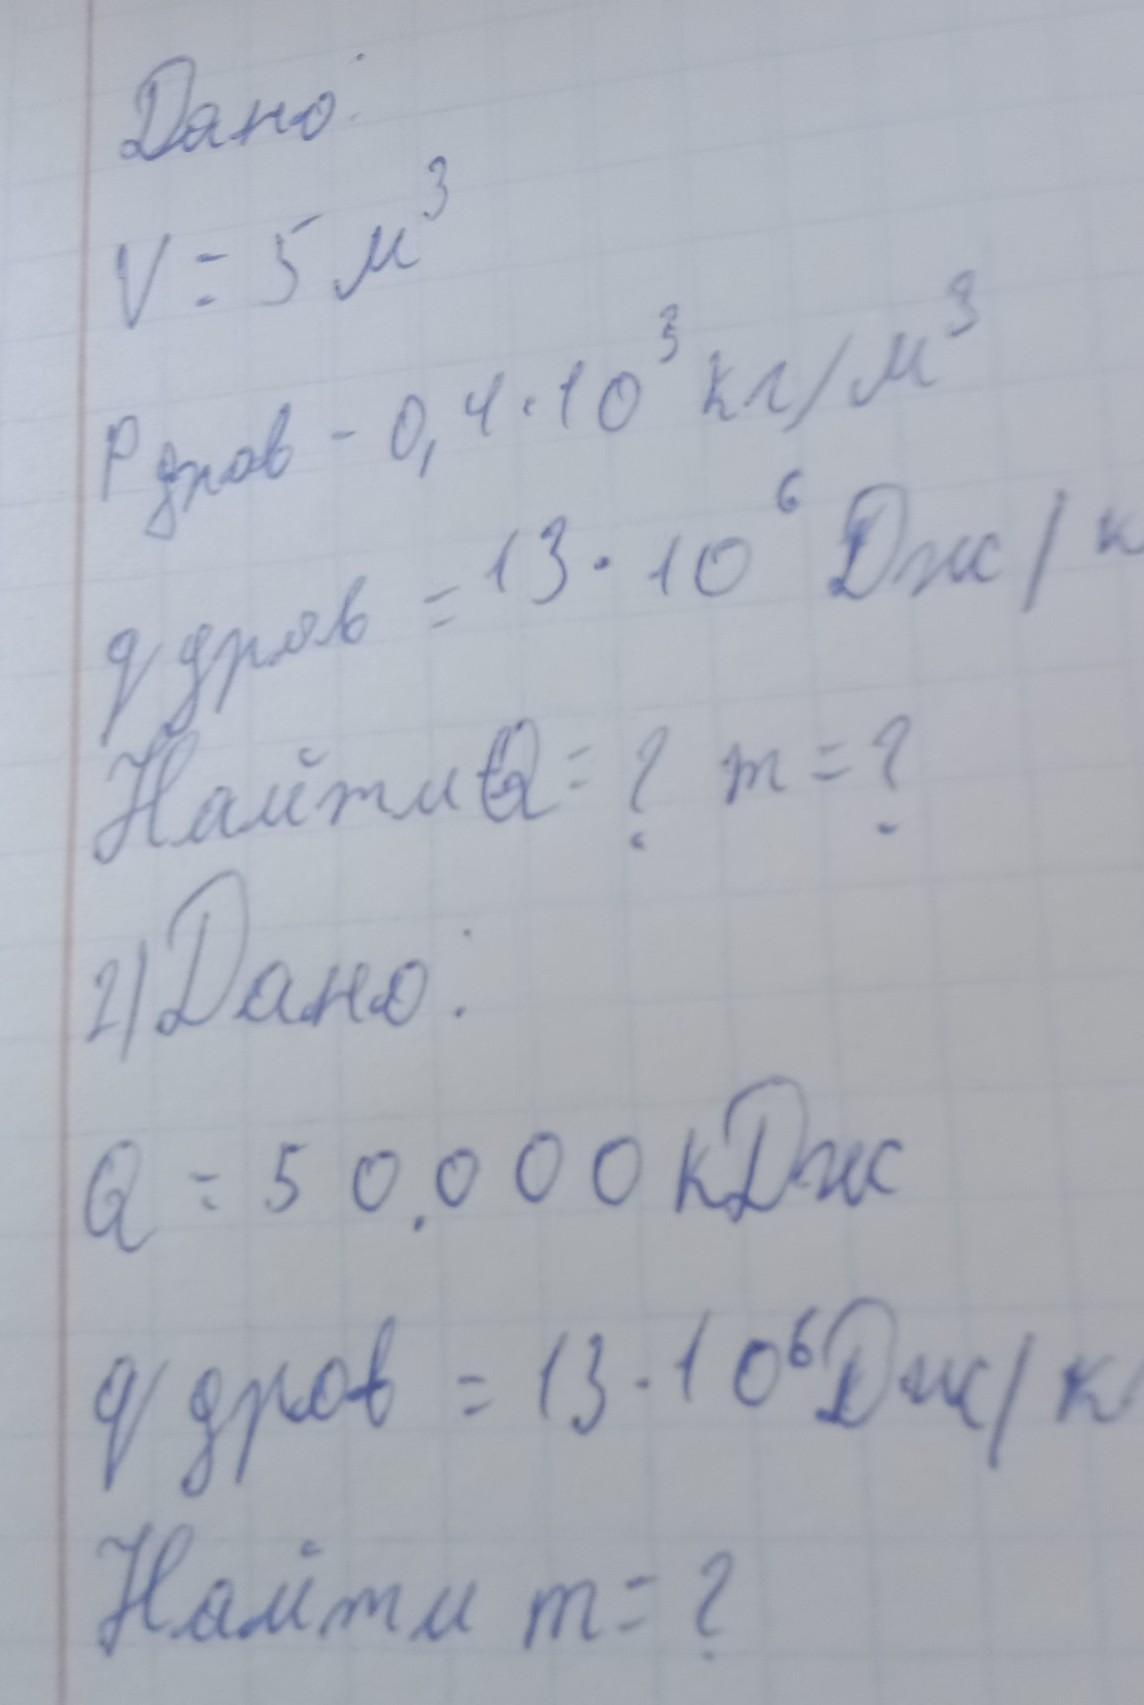 Дано:
V = 5 м³
ρ дров - 0,4·10³ кг/м³
q дров = 13·10⁶ Дж/к
Найти Q = ? m = ?
2) Дано:
Q = 50.000 кДж
q дров = 13·10⁶ Дж/к
Найти m = ?